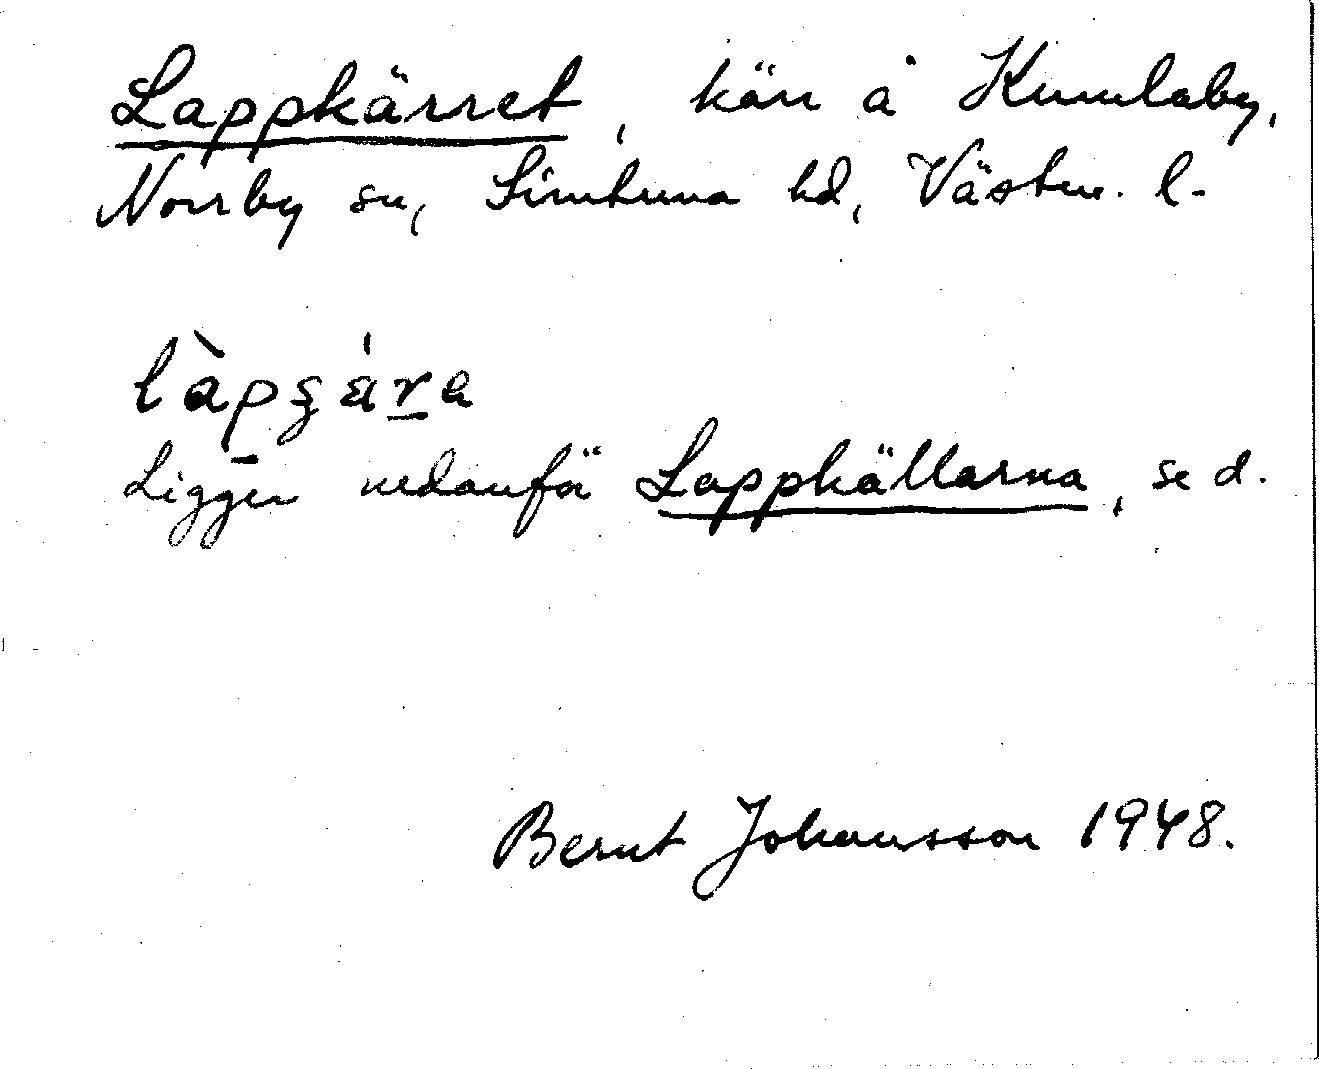 Lappkärret, kärr å Kumlaby,
Norrby sn, Simtuna hd, Västm. l.
Ligger nedanför Lappkällarna, se d.
Bernt Johansson 1948.